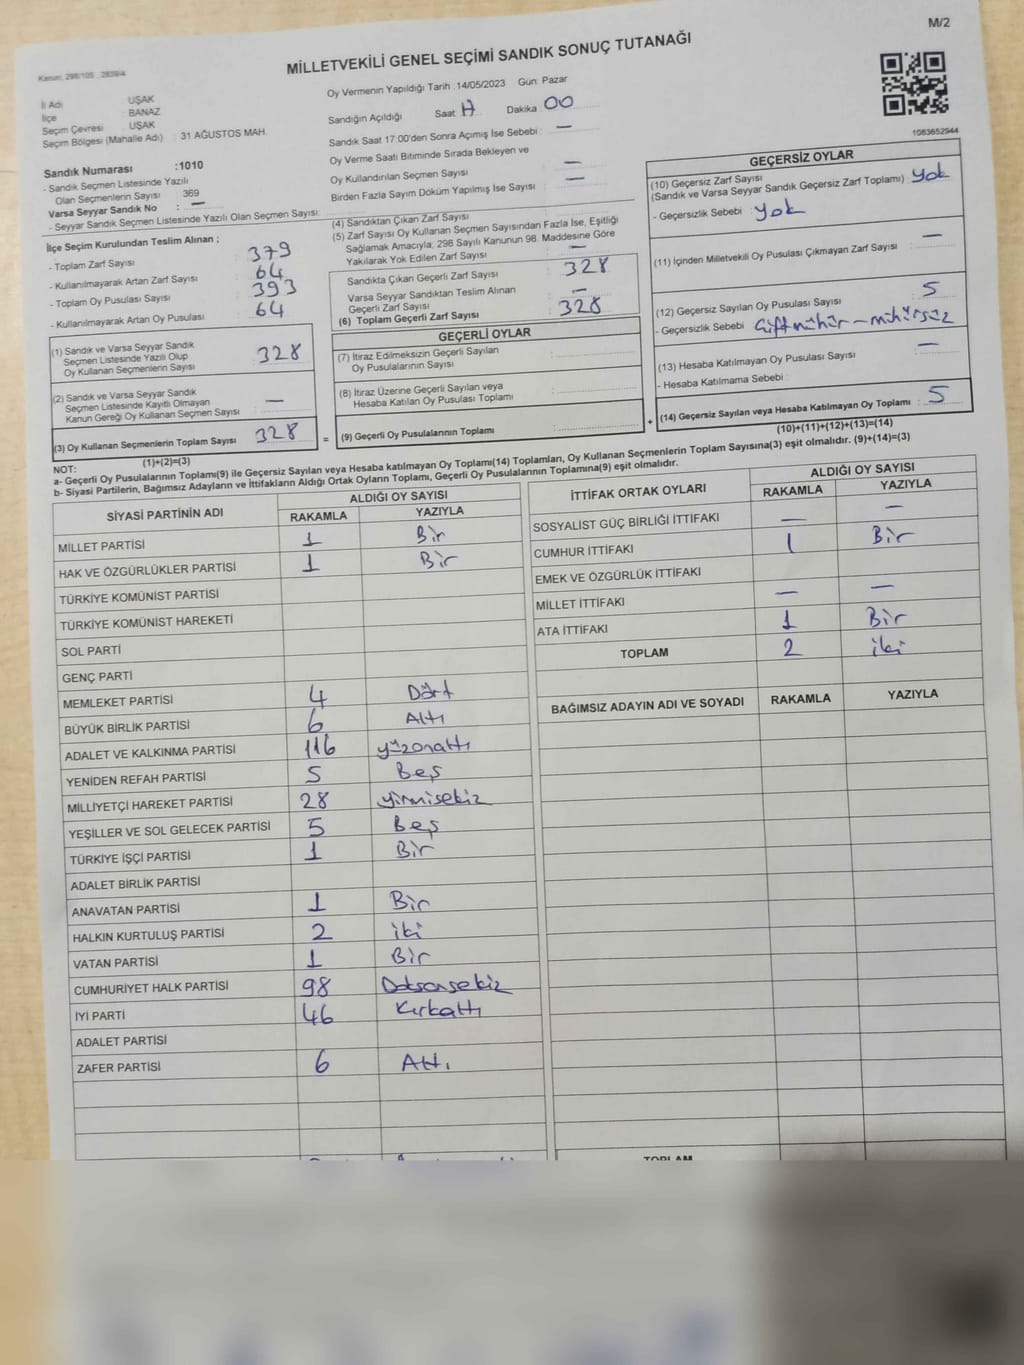 M/2
MİLLETVEKİLİ GENEL SEÇİMİ SANDIK SONUÇ TUTANAĞI
İl Adı : UŞAK
İlçe : BANAZ
Seçim Çevresi : UŞAK
Seçim Bölgesi (Mahalle Adı) : 31 AĞUSTOS MAH.
Sandık Numarası :1010
- Sandık Seçmen Listesinde Yazılı
Olan Seçmenlerin Sayısı : 369
Varsa Seyyar Sandık No : —
- Seyyar Sandık Seçmen Listesinde Yazılı Olan Seçmen Sayısı:
İlçe Seçim Kurulundan Teslim Alınan ;
- Toplam Zarf Sayısı : 379
- Kullanılmayarak Artan Zarf Sayısı : 64
- Toplam Oy Pusulası Sayısı : 393
- Kullanılmayarak Artan Oy Pusulası : 64
(1) Sandık ve Varsa Seyyar Sandık
Seçmen Listesinde Yazılı Olup
Oy Kullanan Seçmenlerin Sayısı : 328
(2) Sandık ve Varsa Seyyar Sandık
Seçmen Listesinde Kayıtlı Olmayan
Kanun Gereği Oy Kullanan Seçmen Sayısı : —
(3) Oy Kullanan Seçmenlerin Toplam Sayısı : 328
(1)+(2)=(3)
Oy Vermenin Yapıldığı Tarih :14/05/2023 Gün: Pazar
Sandığın Açıldığı Saat: Dakika: 00
Sandık Saat 17:00'den Sonra Açımış İse Sebebi : —
Oy Verme Saati Bitiminde Sırada Bekleyen ve
Oy Kullandırılan Seçmen Sayısı : —
Birden Fazla Sayım Döküm Yapılmış İse Sayısı : —
(4) Sandıktan Çıkan Zarf Sayısı :
(5) Zarf Sayısı Oy Kullanan Seçmen Sayısından Fazla İse, Eşitliği
Sağlamak Amacıyla, 298 Sayılı Kanunun 98. Maddesine Göre
Yakılarak Yok Edilen Zarf Sayısı : —
Sandıkta Çıkan Geçerli Zarf Sayısı : 328
Varsa Seyyar Sandıktan Teslim Alınan
Geçerli Zarf Sayısı : —
(6) Toplam Geçerli Zarf Sayısı : 328
GEÇERLİ OYLAR
(7) İtiraz Edilmeksizin Geçerli Sayılan
Oy Pusulalarının Sayısı :
(8) İtiraz Üzerine Geçerli Sayılan veya
Hesaba Katılan Oy Pusulası Toplamı :
= (9) Geçerli Oy Pusulalarının Toplamı : +
1083652944
GEÇERSİZ OYLAR
(10) Geçersiz Zarf Sayısı
(Sandık ve Varsa Seyyar Sandık Geçersiz Zarf Toplamı) : yok
- Geçersizlik Sebebi : yok
(11) İçinden Milletvekili Oy Pusulası Çıkmayan Zarf Sayısı : —
(12) Geçersiz Sayılan Oy Pusulası Sayısı : 5
- Geçersizlik Sebebi : Çift mühür - mühürsüz
(13) Hesaba Katılmayan Oy Pusulası Sayısı : —
- Hesaba Katılmama Sebebi :
(14) Geçersiz Sayılan veya Hesaba Katılmayan Oy Toplamı : 5
(10)+(11)+(12)+(13)=(14)
NOT:
a- Geçerli Oy Pusulalarının Toplamı(9) ile Geçersiz Sayılan veya Hesaba katılmayan Oy Toplamı(14) Toplamları, Oy Kullanan Seçmenlerin Toplam Sayısına(3) eşit olmalıdır. (9)+(14)=(3)
b- Siyasi Partilerin, Bağımsız Adayların ve İttifakların Aldığı Ortak Oyların Toplamı, Geçerli Oy Pusulalarının Toplamına(9) eşit olmalıdır.
SİYASİ PARTİNİN ADI ALDIĞI OY SAYISI
RAKAMLA YAZIYLA
MİLLET PARTİSİ 1 Bir
HAK VE ÖZGÜRLÜKLER PARTİSİ 1 Bir
TÜRKİYE KOMÜNİST PARTİSİ
TÜRKİYE KOMÜNİST HAREKETİ
SOL PARTİ
GENÇ PARTİ
MEMLEKET PARTİSİ 4 Dört
BÜYÜK BİRLİK PARTİSİ 6 Altı
ADALET VE KALKINMA PARTİSİ 116 yüzonaltı
YENİDEN REFAH PARTİSİ 5 Beş
MİLLİYETÇİ HAREKET PARTİSİ 28 yirmisekiz
YEŞİLLER VE SOL GELECEK PARTİSİ 5 Beş
TÜRKİYE İŞÇİ PARTİSİ 1 Bir
ADALET BİRLİK PARTİSİ
ANAVATAN PARTİSİ 1 Bir
HALKIN KURTULUŞ PARTİSİ 2 iki
VATAN PARTİSİ 1 Bir
CUMHURİYET HALK PARTİSİ 98 Doksansekiz
İYİ PARTİ 46 Kırkaltı
ADALET PARTİSİ
ZAFER PARTİSİ 6 Altı
İTTİFAK ORTAK OYLARI ALDIĞI OY SAYISI
RAKAMLA YAZIYLA
SOSYALİST GÜÇ BİRLİĞİ İTTİFAKI — —
CUMHUR İTTİFAKI 1 Bir
EMEK VE ÖZGÜRLÜK İTTİFAKI
MİLLET İTTİFAKI — —
ATA İTTİFAKI 1 Bir
TOPLAM 2 iki
BAĞIMSIZ ADAYIN ADI VE SOYADI RAKAMLA YAZIYLA
TOPLAM